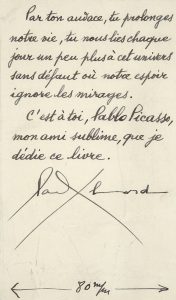 Par ton audace, tu prolonges
notre vie, tu nous lies chaque
jour un peu plus à cet univers
sans défaut où notre espoir
ignore les mirages.
C'est à toi, Pablo Picasso,
mon ami sublime, que je
dédie ce livre.
Paul Eluard
80 m/m